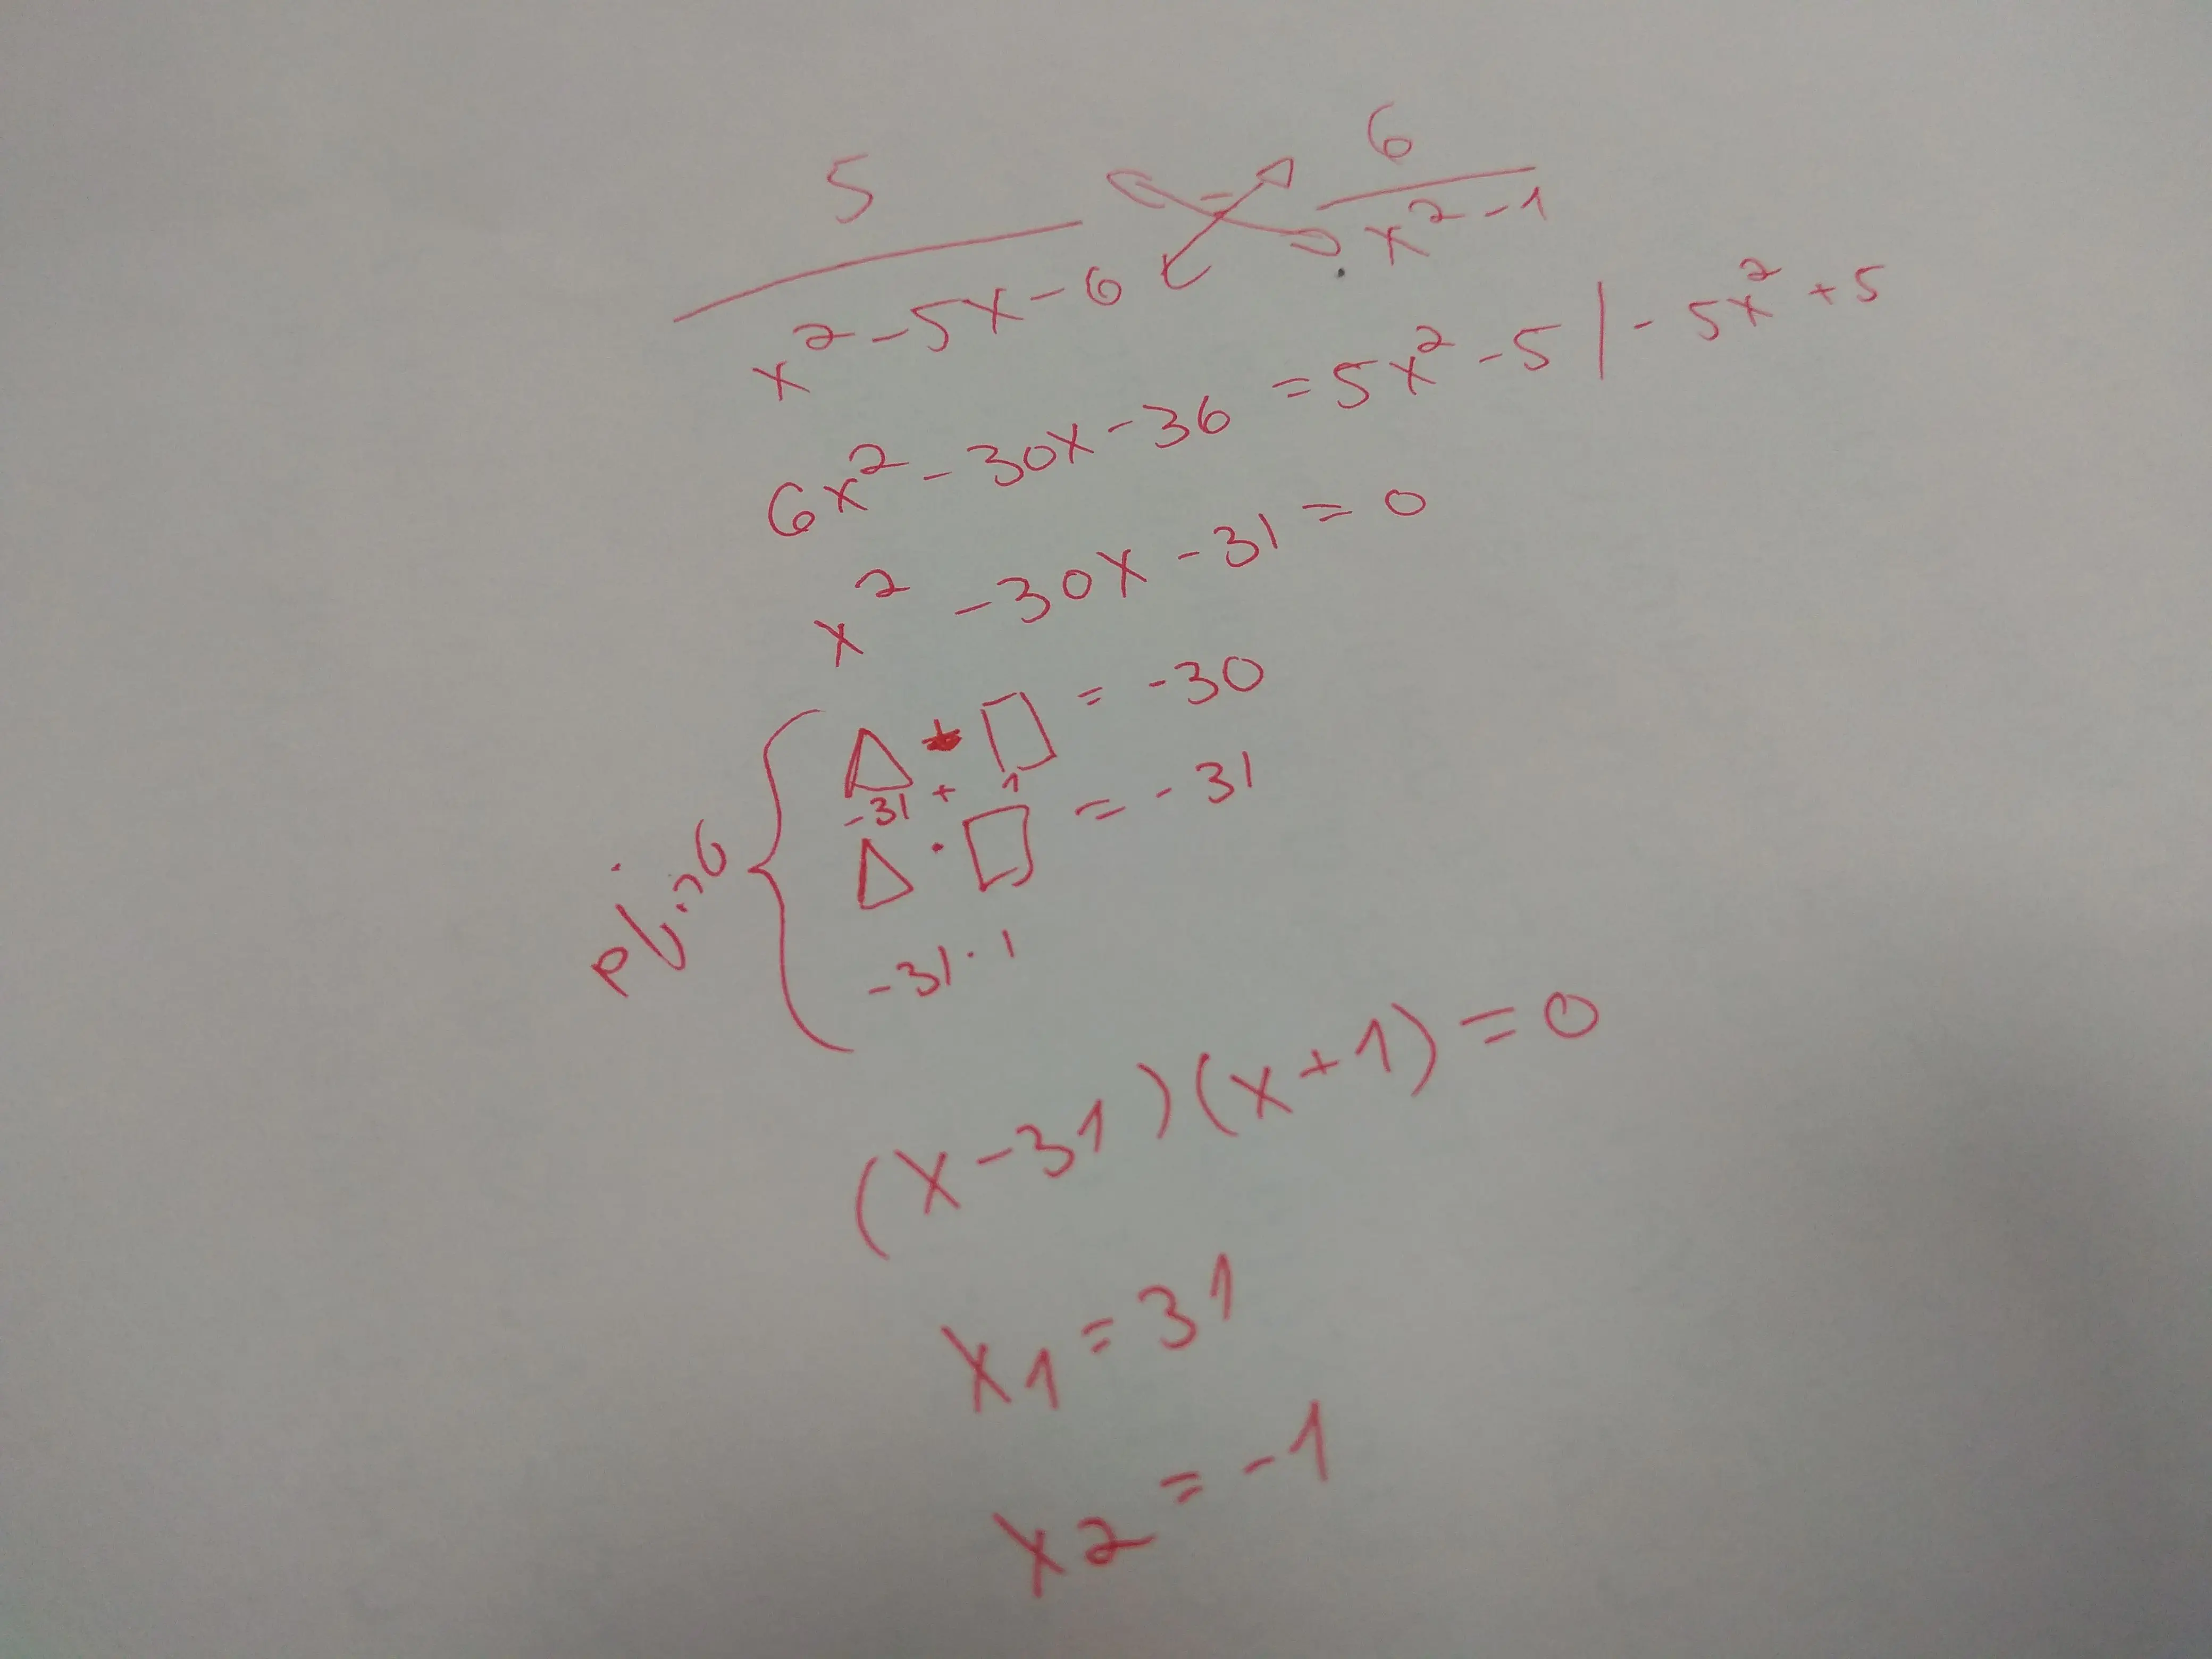 5 = 6
x² - 5x - 6 x² - 1
6x² - 30x - 36 = 5x² - 5 | - 5x² + 5
x² - 30x - 31 = 0
△ + □ = -30
-31 + 1
△ · □ = -31
-31 · 1
(x - 31)(x + 1) = 0
x1 = 31
x2 = -1